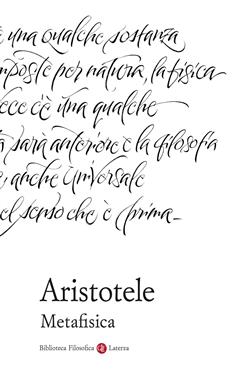 è una qualche sostanza
mposte per natura, la fisica
ece c'è una qualche
sarà anteriore e la filosofia
, anche universale
el senso che è prima_
Aristotele
Metafisica
Biblioteca Filosofica Laterza